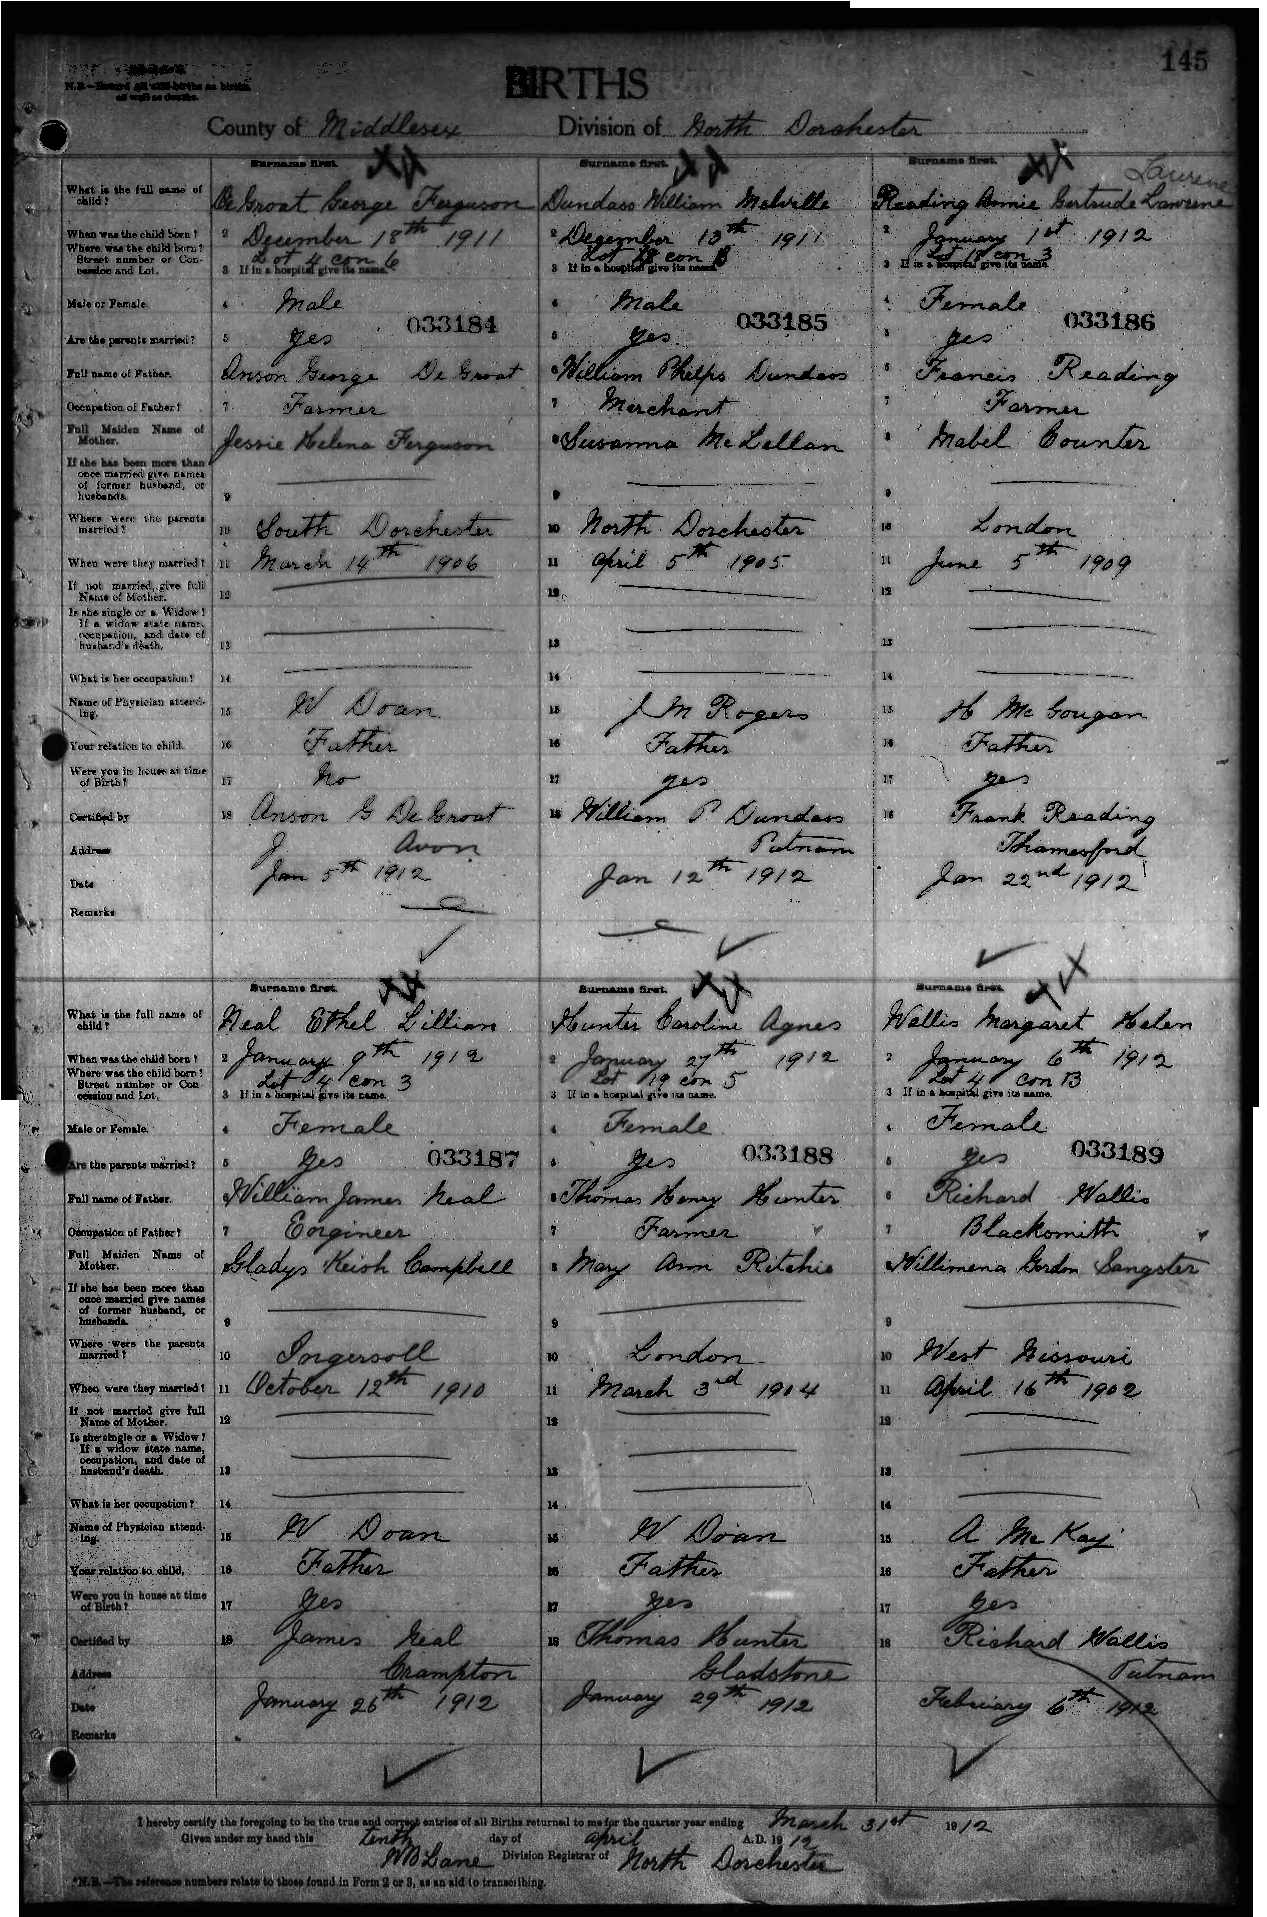 145
N.B.—Record all still-births as births
as well as deaths.
BIRTHS
County of Middlesex Division of North Dorchester
Surname first. Surname first. Surname first.
Laurene
What is the full name of child? De Groat George Ferguson Dundass William Melville Reading Annie Gertrude Lawrene
When was the child born? 2 December 18th 1911 2 December 13th 1911 2 January 1st 1912
Where was the child born? Street number or Concession and Lot. Lot 4 con 6 Lot 18 con B Lot 18 con 3
3 If in a hospital give its name. 3 If in a hospital give its name. 3 If in a hospital give its name.
Male or Female. 4 Male 4 Male 4 Female
033184 033185 033186
Are the parents married? 5 yes 5 yes 5 yes
Full name of Father. Anson George De Groat 6 William Phelps Dundass 6 Francis Reading
Occupation of Father? 7 Farmer 7 Merchant 7 Farmer
Full Maiden Name of Mother. Jessie Helena Ferguson 8 Susanna McLellan 8 Mabel Counter
If she has been more than once married give names of former husband, or husbands. 9 9 9
Where were the parents married? 10 South Dorchester 10 North Dorchester 10 London
When were they married? 11 March 14th 1906 11 April 5th 1905 11 June 5th 1909
If not married, give full Name of Mother. 12 12 12
Is she single or a Widow? If a widow state name, occupation, and date of husband's death. 13 13 13
What is her occupation? 14 14 14
Name of Physician attending. 15 W Doan 15 J M Rogers 15 H McGougan
Your relation to child. 16 Father 16 Father 16 Father
Were you in house at time of Birth? 17 No 17 yes 17 yes
Certified by 18 Anson G De Groat 18 William P Dundass 18 Frank Reading
Address Avon Putnam Thamesford
Date Jan 5th 1912 Jan 12th 1912 Jan 22nd 1912
Remarks
Surname first. Surname first. Surname first.
What is the full name of child? Neal Ethel Lillian Hunter Caroline Agnes Wallis Margaret Helen
When was the child born? 2 January 9th 1912 2 January 27th 1912 2 January 6th 1912
Where was the child born? Street number or Concession and Lot. Lot 4 con 3 Lot 19 con 5 Lot 4 con B
3 If in a hospital give its name. 3 If in a hospital give its name. 3 If in a hospital give its name.
Male or Female. 4 Female 4 Female 4 Female
033187 033188 033189
Are the parents married? 5 yes 5 yes 5 yes
Full name of Father. 6 William James Neal 6 Thomas Henry Hunter 6 Richard Wallis
Occupation of Father? 7 Engineer 7 Farmer 7 Blacksmith
Full Maiden Name of Mother. 8 Gladys Keish Campbell 8 Mary Ann Ritchie 8 Willimena Gordon Sangster
If she has been more than once married give names of former husband, or husbands. 9 9 9
Where were the parents married? 10 Ingersoll 10 London 10 West Nissouri
When were they married? 11 October 12th 1910 11 March 3rd 1904 11 April 16th 1902
If not married give full Name of Mother. 12 12 12
Is she single or a Widow? If a widow state name, occupation, and date of husband's death. 13 13 13
What is her occupation? 14 14 14
Name of Physician attending. 15 W Doan 15 W Doan 15 A McKay
Your relation to child. 16 Father 16 Father 16 Father
Were you in house at time of Birth? 17 yes 17 yes 17 yes
Certified by 18 James Neal 18 Thomas Hunter 18 Richard Wallis
Address Crampton Gladstone Putnam
Date January 26th 1912 January 29th 1912 February 6th 1912
Remarks
I hereby certify the foregoing to be the true and correct entries of all Births returned to me for the quarter year ending March 31st 1912
Given under my hand this tenth day of April A.D. 1912
WB Lane Division Registrar of North Dorchester
*N.B.—The reference numbers relate to those found in Form 2 or 3, as an aid to transcribing.